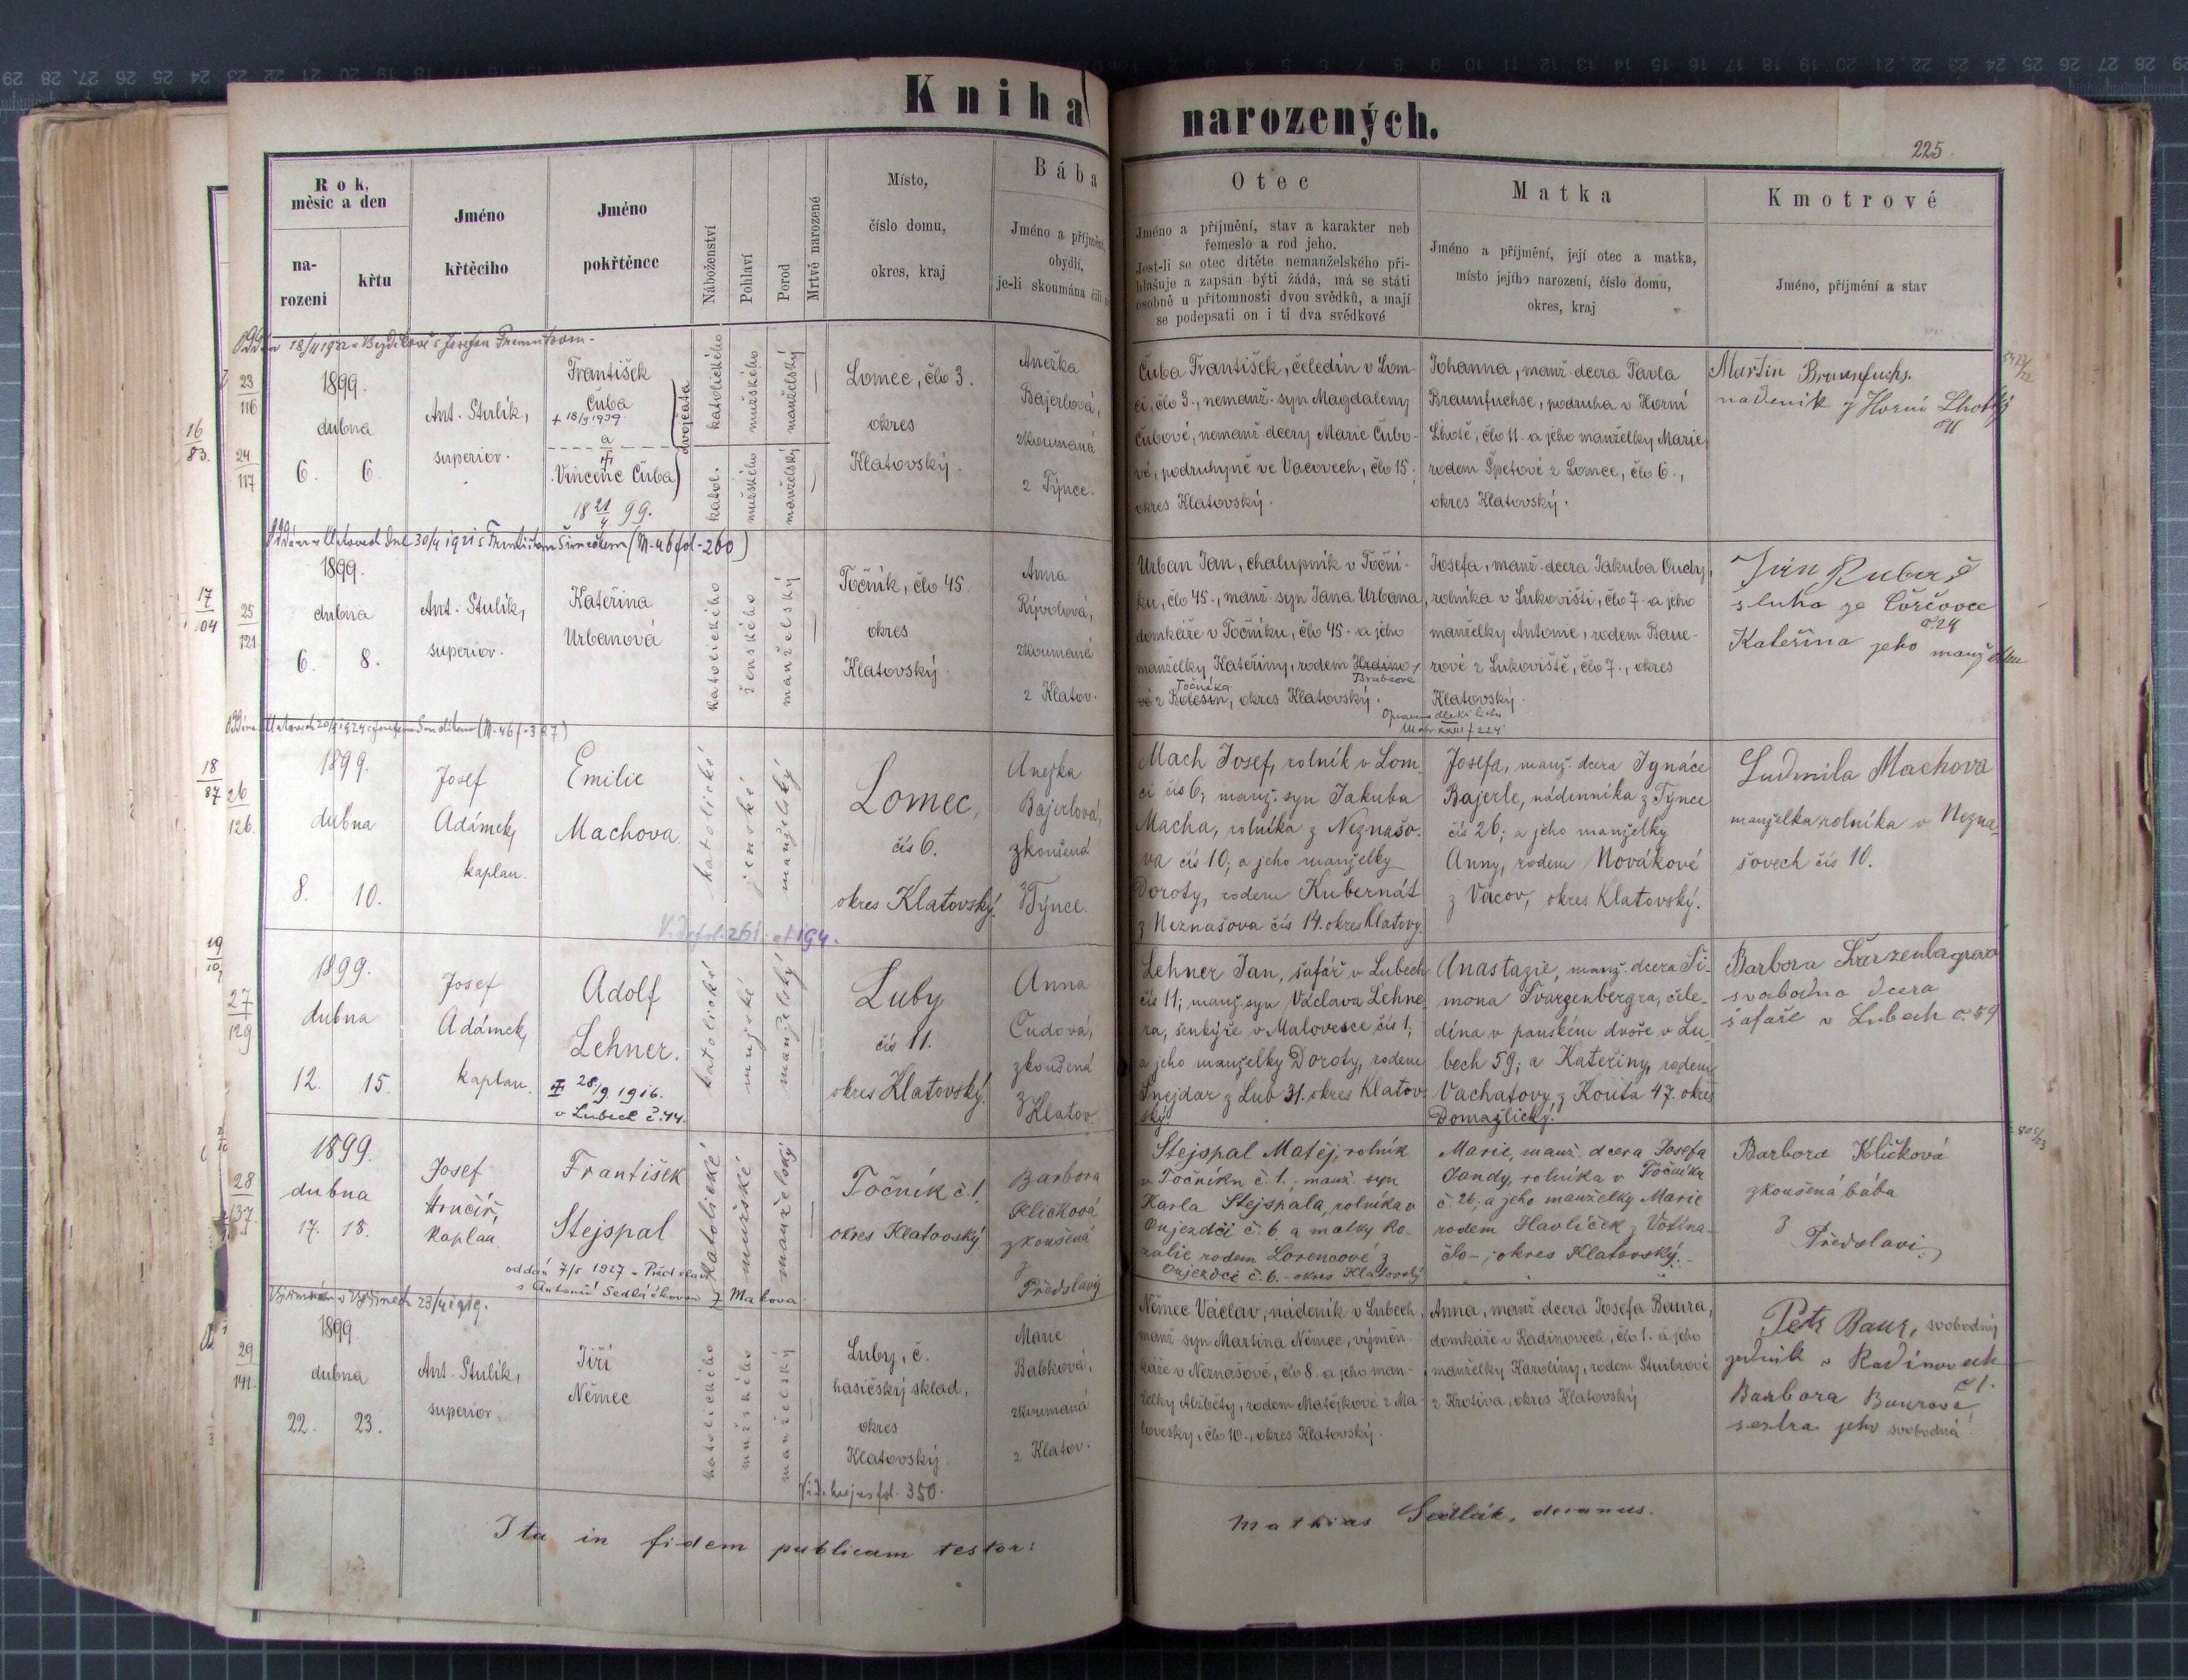 Kniha narozených.
225
Rok, měsíc a den
narození
křtu
Jméno křtěcího
Jméno pokřtěnce
Náboženství
Pohlaví
Porod
Mrtvě narozené
Místo,
číslo domu,
okres, kraj
Bába
Jméno a příjmení,
obydlí,
je-li skoumána čili
Otec
Jméno a příjmení, stav a karakter neb
řemeslo a rod jeho.
Jest-li se otec dítěte nemanželského při-
hlašuje a zapsán býti žádá, má se státi
osobně u přítomnosti dvou svědků, a mají
se podepsati on i ti dva svědkové
Matka
Jméno a příjmení, její otec a matka,
místo jejího narození, číslo domu,
okres, kraj
Kmotrové
Jméno, příjmení a stav
16
83.
23
116
24
117
1899.
dubna
6.
6.
Ant. Stulík,
superior.
František
Čuba
+ 18/9 1939.
a
Vincenc Čuba
18 21/4 99.
dvojčata
katolického
mužského
manželský
katol.
mužského
manželský
Lomec, člo 3.
okres
Klatovský.
Anežka
Bajerlová,
zkoumaná
z Týnce.
Čuba František, čeledín v Lom-
ci, člo 3., nemanž. syn Magdaleny
Čubové, nemanž. dcery Marie Čubo-
vé, podruhyně ve Vacovech, člo 15.
okres Klatovský.
Johanna, manž. dcera Pavla
Braunfuchse, podruha v Horní
Lhotě, člo 11. a jeho manželky Marie,
rodem Špetové z Lomce, člo 6.,
okres Klatovský.
Martin Braunfuchs.
nadeník z Horní Lhoty
30/4 1921 s Františkem (M-46 fol-260)
17
104
25
121
1899.
dubna
6.
8.
Ant. Stulík,
superior.
Kateřina
Urbanová
katolického
ženského
manželský
Točník, člo 45.
okres
Klatovský.
Anna
Rývolová,
zkoumaná
z Klatov.
Urban Jan, chalupník v Toční-
ku, člo 45., manž. syn Jana Urbana,
domkáře v Točníku, člo 45. a jeho
manželky Kateřiny, rodem Hrdino-
Brabcové
Točníka
vé z Bolešin, okres Klatovský.
Josefa, manž. dcera Jakuba Oudy,
rolníka v Lukovišti, člo 7. a jeho
manželky Antonie, rodem Baue-
rové z Lukoviště, člo 7., okres
Klatovský.
sluha ze
č. 24
Kateřina jeho manželka
18
87
26
126.
1899.
dubna
8.
10.
Josef
Adámek,
kaplan.
Emilie
Machova
katolické
ženské
manželský
Lomec,
čís 6.
okres Klatovský.
Anežka
Bajerlová,
zkoušená
z Týnce.
Mach Josef, rolník v Lom-
ci čís 6; manž. syn Jakuba
Macha, rolníka z Neznašo-
va čís 10; a jeho manželky
Doroty, rodem Kubernát
z Neznašova čís 14. okres Klatovy.
Josefa, manž. dcera Ignáce
Bajerle, nádenníka z Týnce
čís 26; a jeho manželky
Anny, rodem Novákové
z Vacov, okres Klatovský.
Ludmila Machova
manželka rolníka v Nezna-
šovech čís 10.
27
129.
1899.
dubna
12.
15.
Josef
Adámek,
kaplan.
Adolf
Lehner.
28/9 1916.
v Lubech č. 44.
katolické
mužské
manželský
Luby
čís 11.
okres Klatovský.
Anna
Čudová,
zkoušená
z Klatov.
Lehner Jan, šafář v Lubech
čís 11; manž. syn Václava Lehne-
ra, šenkýře v Malovesce čís 1;
a jeho manželky Doroty, rodem
Šnejdar z Lub 31. okres Klatov-
ský.
Anastazie, manž. dcera Ši-
mona Švarzenbergra, čele-
dína v panském dvoře v Lu-
bech 59; a Kateřiny, rodem
Vachatovy z Kouta 47. okres
Domažlický.
Barbora
svobodna dcera
šafaře v Lubech č. 59
28
137.
1899.
dubna
17.
18.
Josef
Hrnčíř,
Kaplan
František
Stejspal
oddán 7/5 1927 v Předslavi
s Antonií Sedláčkovou z Makova.
katolické
mužské
manželský
Točník č. 1.
okres Klatovský
Barbora
Klíčková
zkoušená
z
Předslavi
Stejspal Matěj, rolník
v Točníku č. 1.; manž. syn
Karla Stejspala, rolníka v
Oujezdci č. 6. a matky Ro-
zalie rodem Lorencové z
Oujezdce č. 6. okres Klatovský
Marie, manž. dcera Josefa
Jandy, rolníka v Točníku
č. 26; a jeho manželky Marie
rodem Havlíček z Votína
člo -; okres Klatovský.
Barbora Klíčková
zkoušená bába
z
Předslavi
29
141.
23/4 1919.
1899
dubna
22.
23.
Ant. Stulík,
superior.
Jiří
Němec
katolického
mužského
manželský
Luby, č.
hasičský sklad,
okres
Klatovský.
Marie
Babková,
zkoumaná
z Klatov.
Němec Václav, nádeník v Lubech,
manž. syn Martina Němce, výměn-
káře v Neznašově, člo 8. a jeho man-
želky Alžběty, rodem Matějkové z Ma-
lovesky, člo 10., okres Klatovský.
Anna, manž. dcera Josefa Baura,
domkáře v Radinovech, člo 1. a jeho
manželky Karolíny, rodem Stuibrové
z Krotiva, okres Klatovský.
Petr Baur, svobodný
v Radinovech
č 1.
Barbora Baurová
sestra jeho svobodná
fol. 350.
Ita in fidem publicam testor:
Mathias Sedlák, decanus.